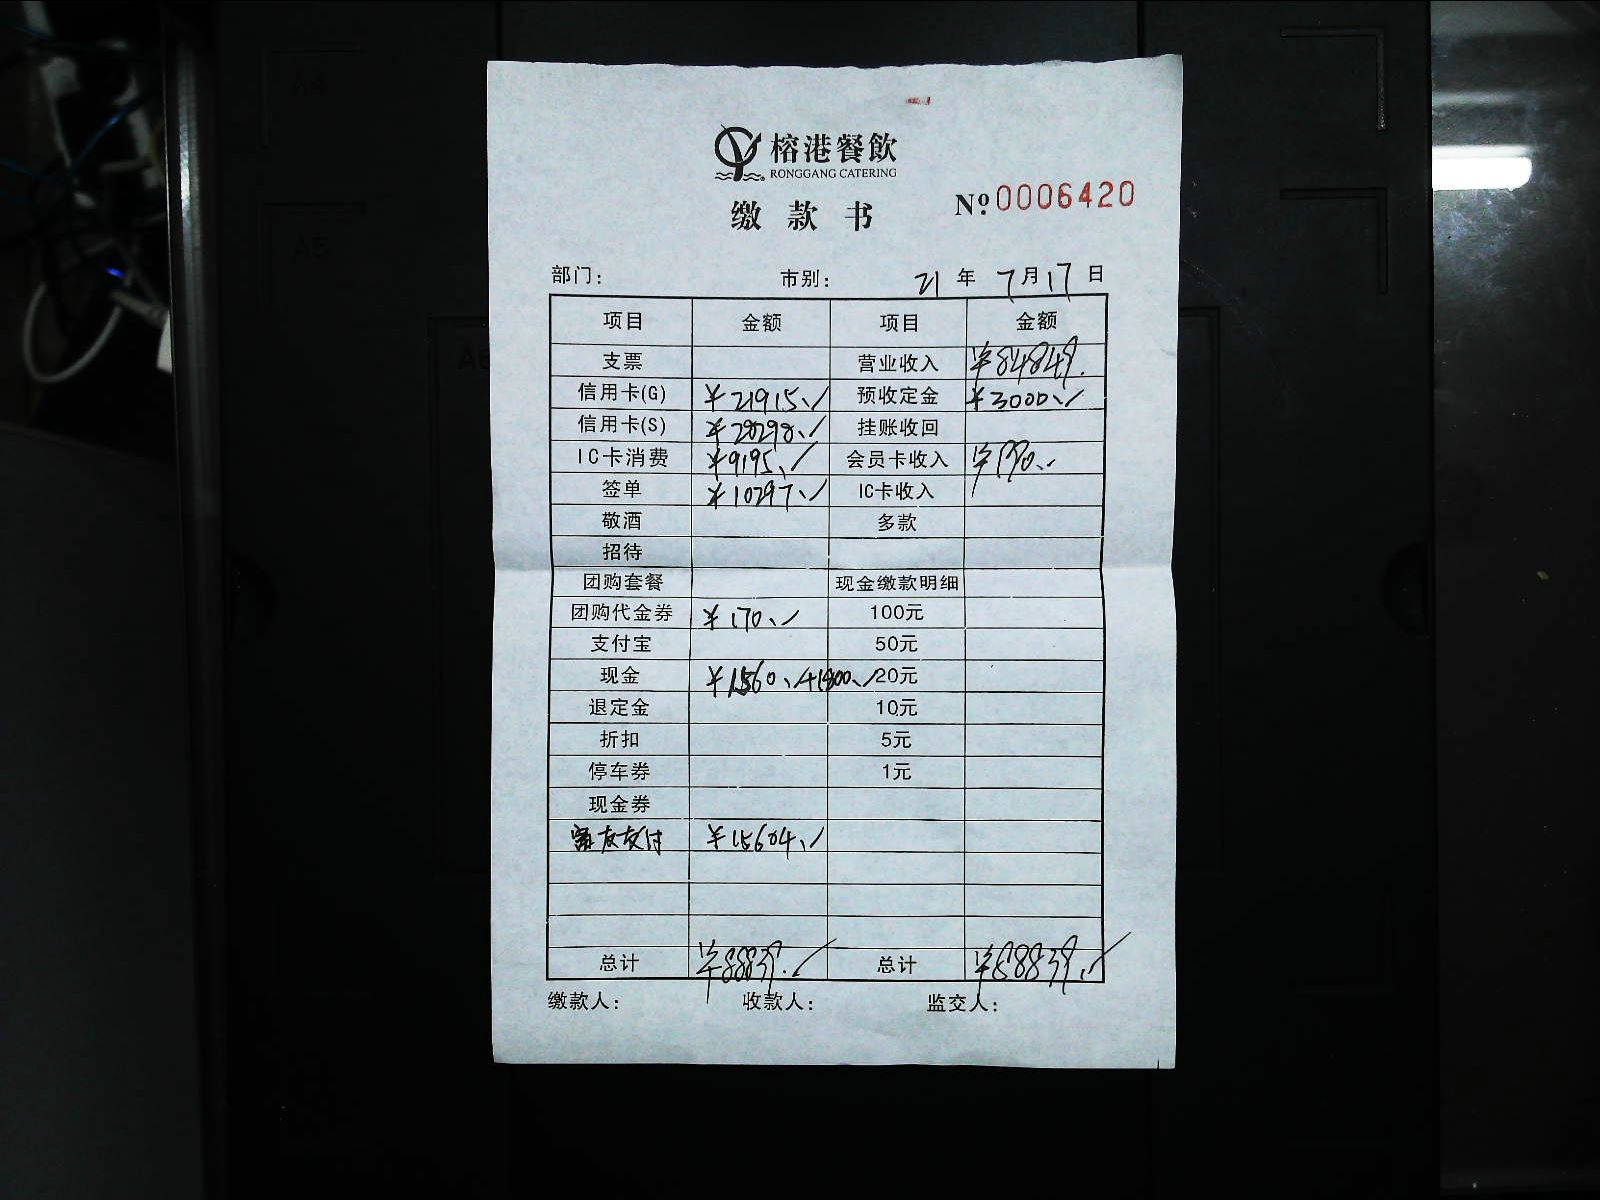 榕港餐飲
RONGGANG CATERING
缴款书 Nº 0006420
部门： 市别： 21 年 7 月 17 日
项目 金额 项目 金额
支票 营业收入 ¥84849.
信用卡(G) ¥21915.✓ 预收定金 ¥3000.✓
信用卡(S) ¥28298.✓ 挂账收回
IC卡消费 ¥9195.✓ 会员卡收入 ¥990.✓
签单 ¥10297.✓ IC卡收入
敬酒 多款
招待
团购套餐 现金缴款明细
团购代金券 ¥170.✓ 100元
支付宝 50元
现金 ¥1560.✓+1800.✓ 20元
退定金 10元
折扣 5元
停车券 1元
现金券
富友支付 ¥15604.✓
总计 ¥88839.✓ 总计 ¥88839.✓
缴款人： 收款人： 监交人：